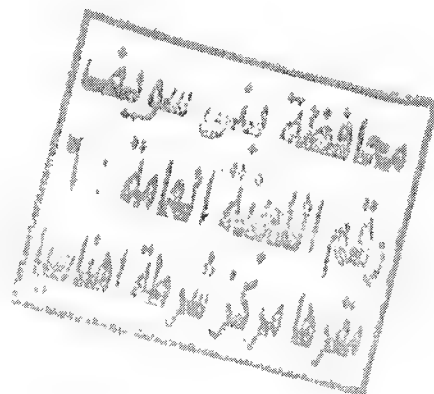 محافظة بنى سويف
رقم اللجنة العامة : ٦
مقرها مركز شرطة اهناسيا